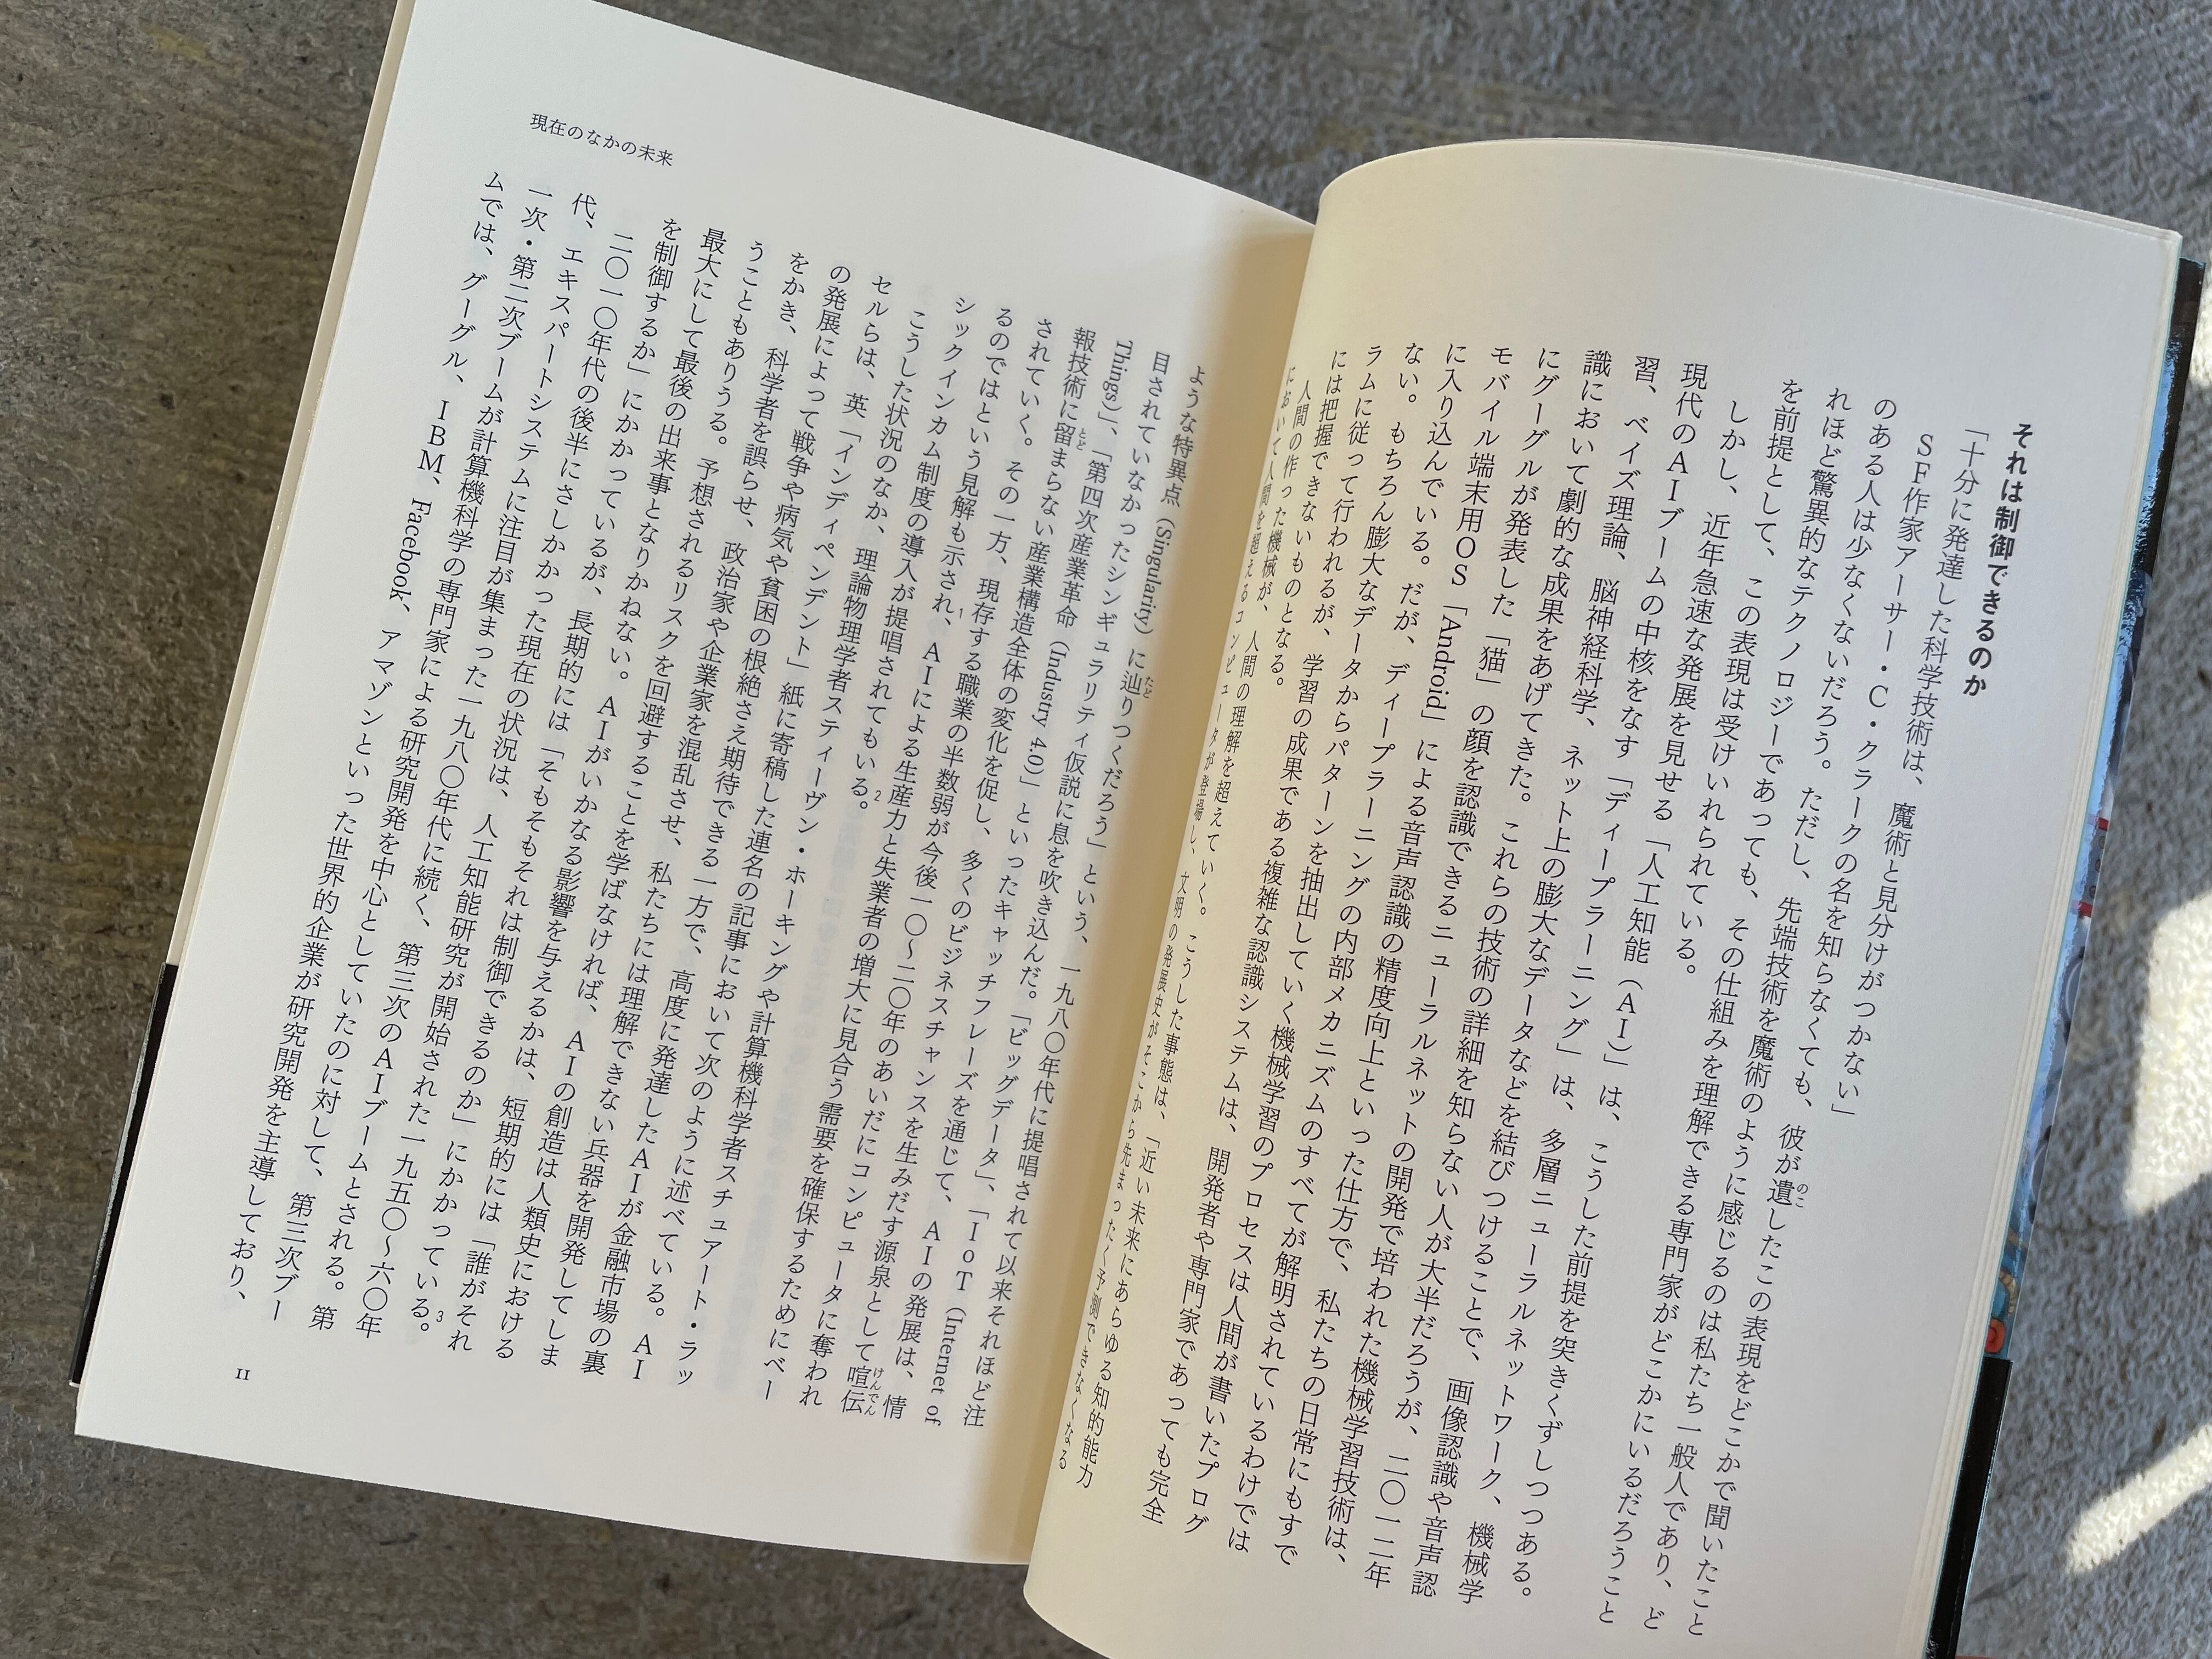 それは制御できるのか
「十分に発達した科学技術は、魔術と見分けがつかない」
SF作家アーサー・C・クラークの名を知らなくても、彼が遺したこの表現をどこかで聞いたこと
のある人は少なくないだろう。ただし、先端技術を魔術のように感じるのは私たち一般人であり、ど
れほど驚異的なテクノロジーであっても、その仕組みを理解できる専門家がどこかにいるだろうこと
を前提として、この表現は受けいれられている。
しかし、近年急速な発展を見せる「人工知能(AI)」は、こうした前提を突きくずしつつある。
現代のAIブームの中核をなす「ディープラーニング」は、多層ニューラルネットワーク、機械学
習、ベイズ理論、脳神経科学、ネット上の膨大なデータなどを結びつけることで、画像認識や音声認
識において劇的な成果をあげてきた。これらの技術の詳細を知らない人が大半だろうが、二〇一二年
にグーグルが発表した「猫」の顔を認識できるニューラルネットの開発で培われた機械学習技術は、
モバイル端末用OS「Android」による音声認識の精度向上といった仕方で、私たちの日常にもすで
に入り込んでいる。だが、ディープラーニングの内部メカニズムのすべてが解明されているわけでは
ない。もちろん膨大なデータからパターンを抽出していく機械学習のプロセスは人間が書いたプログ
ラムに従って行われるが、学習の成果である複雑な認識システムは、開発者や専門家であっても完全
には把握できないものとなる。
人間の作った機械が、人間の理解を超えていく。こうした事態は、「近い未来にあらゆる知的能力
において人間を超えるコンピュータが登場し、文明の発展史がそこから先まったく予測できなくなる
現在のなかの未来
ような特異点(Singularity)に辿りつくだろう」という、一九八〇年代に提唱されて以来それほど注
目されていなかったシンギュラリティ仮説に息を吹き込んだ。「ビッグデータ」、「IoT(Internet of
Things)」、「第四次産業革命(Industry 4.0)」といったキャッチフレーズを通じて、AIの発展は、情
報技術に留まらない産業構造全体の変化を促し、多くのビジネスチャンスを生みだす源泉として喧伝
されていく。その一方、現存する職業の半数弱が今後一〇〜二〇年のあいだにコンピュータに奪われ
るのではという見解も示され1、AIによる生産力と失業者の増大に見合う需要を確保するためにベー
シックインカム制度の導入が提唱されてもいる2。
こうした状況のなか、理論物理学者スティーヴン・ホーキングや計算機科学者スチュアート・ラッ
セルらは、英「インディペンデント」紙に寄稿した連名の記事において次のように述べている。AI
の発展によって戦争や病気や貧困の根絶さえ期待できる一方で、高度に発達したAIが金融市場の裏
をかき、科学者を誤らせ、政治家や企業家を混乱させ、私たちには理解できない兵器を開発してしま
うこともありうる。予想されるリスクを回避することを学ばなければ、AIの創造は人類史における
最大にして最後の出来事となりかねない。AIがいかなる影響を与えるかは、短期的には「誰がそれ
を制御するか」にかかっているが、長期的には「そもそもそれは制御できるのか」にかかっている3。
二〇一〇年代の後半にさしかかった現在の状況は、人工知能研究が開始された一九五〇〜六〇年
代、エキスパートシステムに注目が集まった一九八〇年代に続く、第三次のAIブームとされる。第
一次・第二次ブームが計算機科学の専門家による研究開発を中心としていたのに対して、第三次ブー
ムでは、グーグル、IBM、Facebook、アマゾンといった世界的企業が研究開発を主導しており、
11